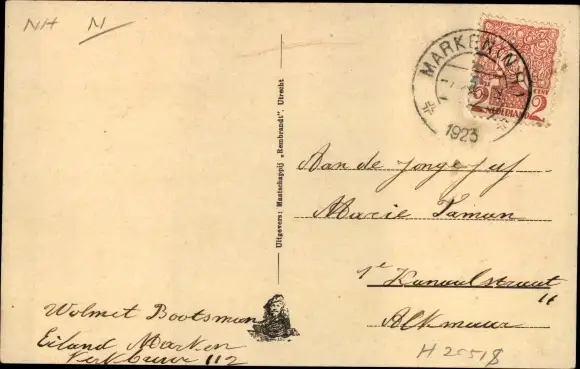 NH N
MARKEN (N.H.)
1923
2 CENT 2
NEDERLAND
Uitgevers: Maatschappij „Rembrandt", Utrecht
Aan de Jonge Juf
Marie Taman
1e Kanaalstraat
"
Alkmaar
Wolmet Bootsman
Eiland Marken
112
H 20518